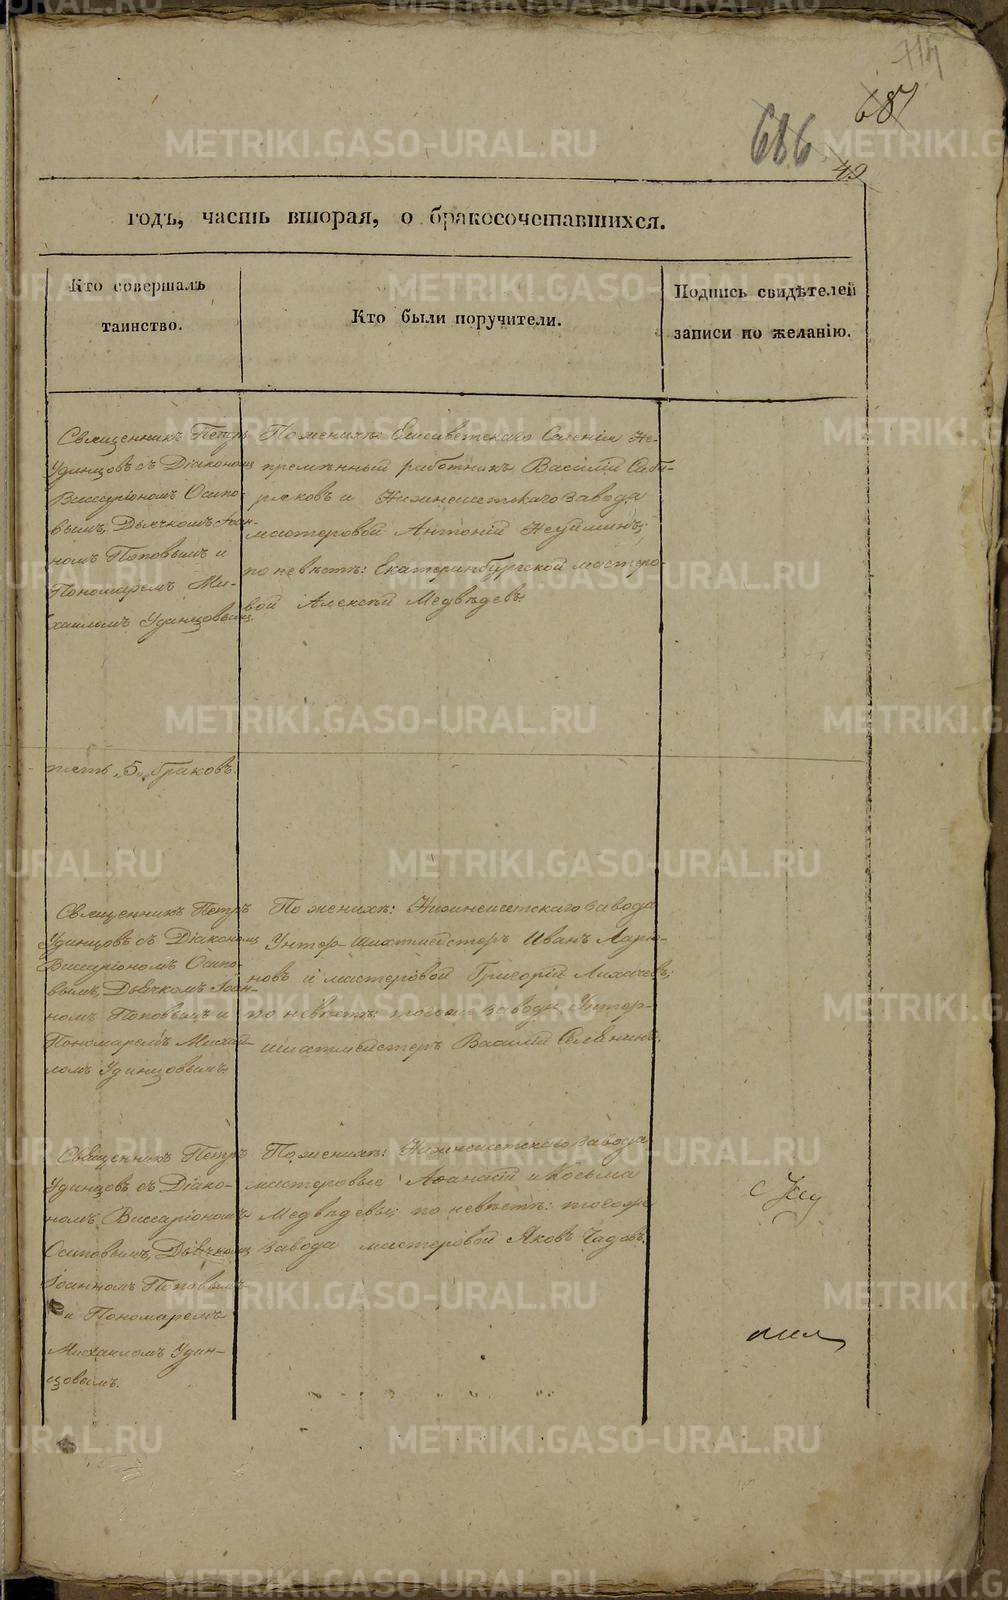 714
687
686
49
годъ, часть вторая, о бракосочетавшихся.
Кто совершалъ
таинство.
Кто были поручители.
Подпись свидѣтелей
записи по желанію.
Священникъ Петръ
Удинцовъ съ Діакономъ
Виссаріономъ Осипо-
вымъ, Дьячкомъ Іоан-
номъ Поповымъ и
Пономаремъ Ми-
хаиломъ Удинцовымъ.
По женихѣ: Елисаветскаго Селенія Не-
премѣнный работникъ Василій Сиби-
ряковъ и Нижнеисетскаго завода
мастеровой Антоній
по невѣстѣ: Екатеринбургской мастеро-
вой Алексѣй Медвѣдевъ.
пять „5„ браковъ.
Священникъ Петръ
Удинцовъ съ Діакономъ
Виссаріономъ Осипо-
вымъ, Дьячкомъ Іоан-
номъ Поповымъ и
Пономаремъ Михаи-
ломъ Удинцовымъ.
По женихѣ: Нижнеисетскаго завода
Унтер-Шихтмейстеръ Иванъ Ларіо-
новъ и мастеровой Григорій Лихачевъ;
по невѣстѣ: тогоже завода Унтер-
шихтмейстеръ Василій Селянинъ.
Священникъ Петръ
Удинцовъ съ Діако-
номъ Виссаріономъ
Осиповымъ, Дьячкомъ
Іоанномъ Поповымъ
и Пономаремъ
Михаиломъ Удин-
цовымъ.
По женихѣ: Нижнеисетскаго завода
мастеровые Аѳанасій и Косьма
Медвѣдевы; по невѣстѣ: тогоже
завода мастеровой Яковъ Чадовъ.
METRIKI.GASO-URAL.RU